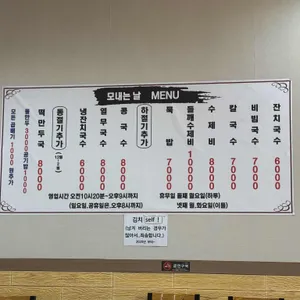 모내는 날 MENU
잔치국수 6000
비빔국수 7000
칼국수 7000
수제비 7000
들깨수제비 10000
묵밥 7000
하절기추가
콩국수 8000
열무국수 8000
냉잔치국수 6000
동절기추가
떡만두국 8000
물만두 3000 공기밥 1000
모든 곱빼기 1000원 추가
영업시간 오전10시20분~오후9시까지
(일요일,공휴일은,오후8시까지)
휴무일 둘째 월요일(하루)
넷째 월,화요일(이틀)
김치 self !
(남겨 버리는 경우가
많아서,,죄송합니다.)